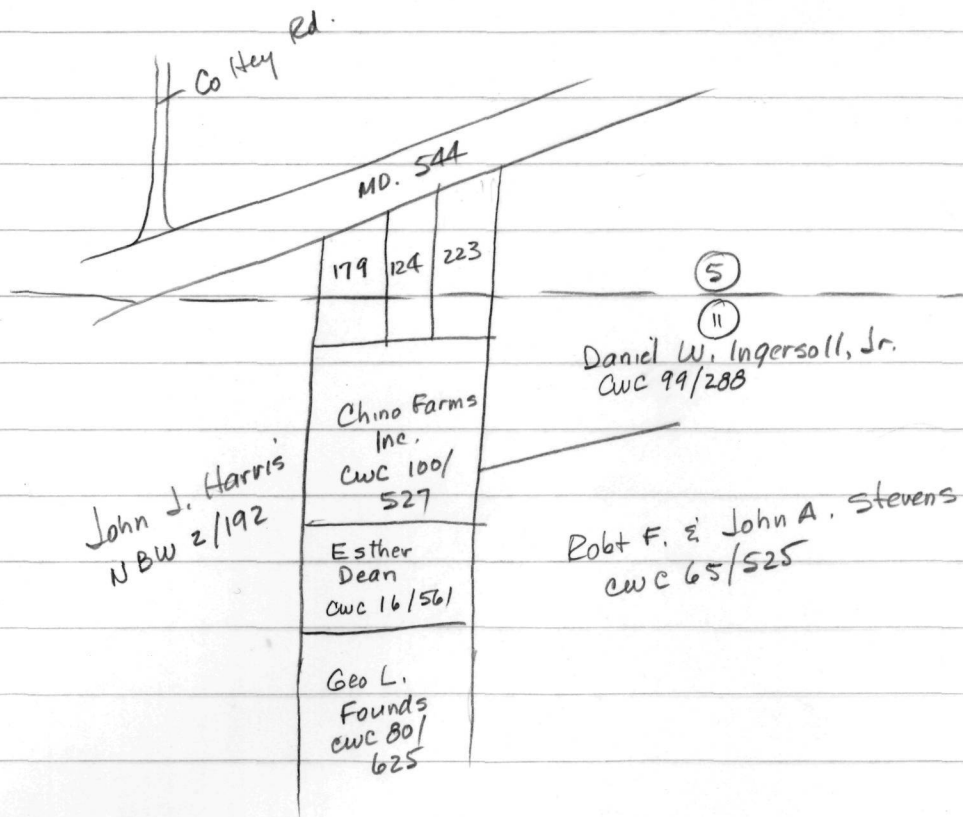 Co Hey Rd.
MD. 544
179
124
223
5
11
Daniel W. Ingersoll, Jr.
CWC 99/288
Chino Farms
Inc.
CWC 100/
527
John J. Harris
NBW 2/192
Esther
Dean
CWC 16/561
Robt F. & John A. Stevens
CWC 65/525
Geo L.
Founds
CWC 80/
625